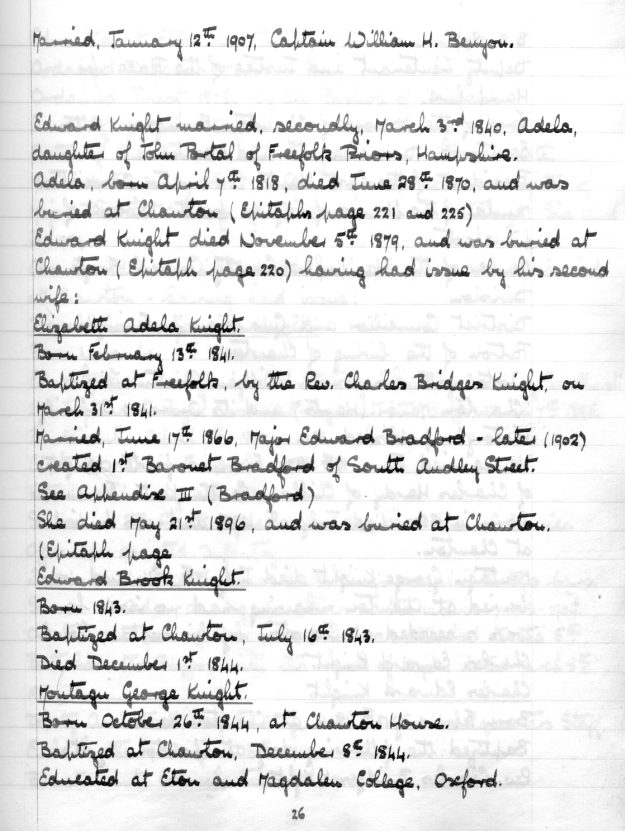 Married, January 12th 1907, Captain William H. Benyon.
Edward Knight married, secondly, March 3rd 1840, Adela,
daughter of John Portal of Freefolk Priors, Hampshire.
Adela, born April 7th 1818, died June 28th 1870, and was
buried at Chawton (Epitaphs page 221 and 225)
Edward Knight died November 5th 1879, and was buried at
Chawton (Epitaph page 220) having had issue by his second
wife:
Elizabeth Adela Knight.
Born February 13th 1841.
Baptized at Freefolk, by the Rev. Charles Bridges Knight, on
March 31st 1841.
Married, June 17th 1866, Major Edward Bradford - later (1902)
created 1st Baronet Bradford of South Audley Street.
See Appendix III (Bradford)
She died May 21st 1896, and was buried at Chawton.
(Epitaph page
Edward Brook Knight.
Born 1843.
Baptized at Chawton, July 16th 1843.
Died December 1st 1844.
Montagu George Knight.
Born October 26th 1844, at Chawton House.
Baptized at Chawton, December 8th 1844.
Educated at Eton and Magdalen College, Oxford.
26